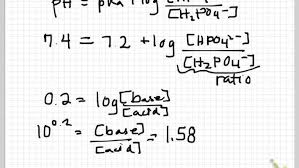 pH = pka + log [HPO4²⁻]/[H2PO4⁻]
7.4 = 7.2 + log [HPO4²⁻]/[H2PO4⁻]
ratio
0.2 = log [base]/[acid]
10^0.2 = [base]/[acid] = 1.58